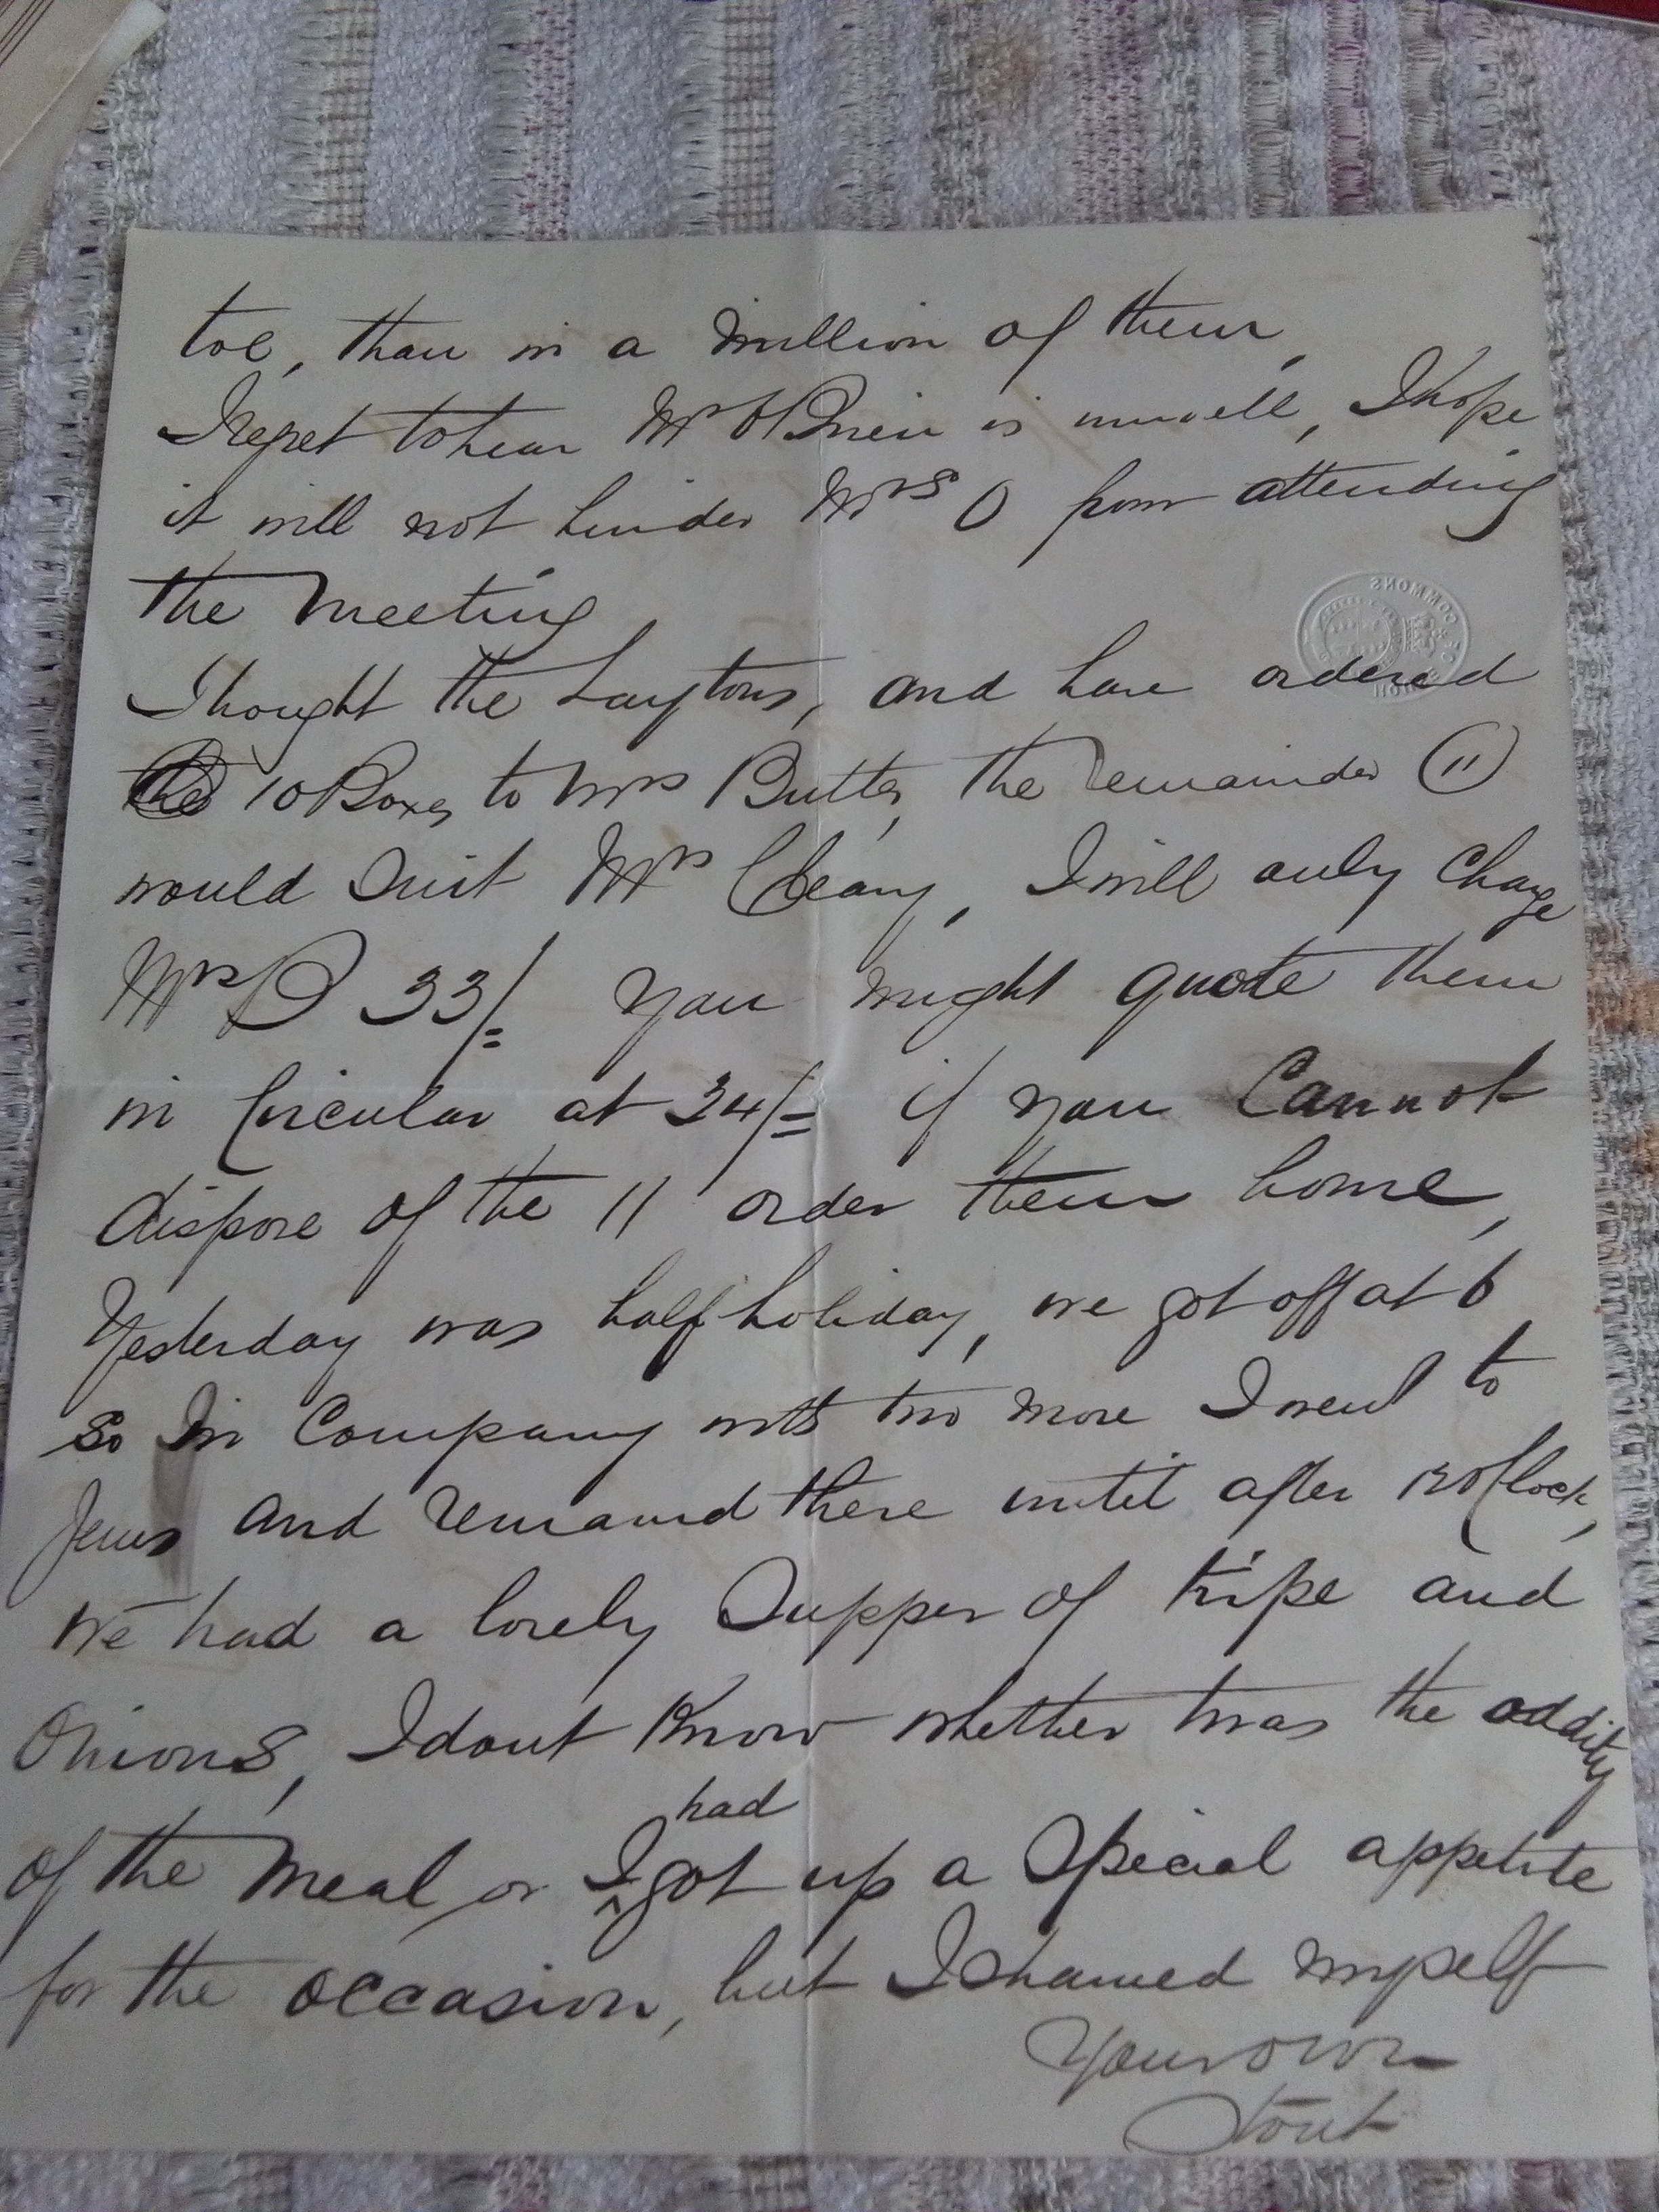 toe, than in a million of them,
I regret to hear Mr O'Brien is unwell, I hope
it will not hinder Mrs O from attending
the Meeting
I bought the Laytons, and have ordered
the 10 Boxes to Mrs Butler, the remainder (11)
would Suit Mrs Cleary, I will only Charge
Mrs B 33/= you might quote them
in Circular at 34/= if you Cannot
dispose of the 11 order them home,
Yesterday was half holiday, we got off at 6
So In Company with two more I went to
and remained there until after 12 o'Clock,
We had a lovely Supper of tripe and
Onions, I dont Know whether twas the oddity
of the Meal or I had got up a Special appetite
for the occasion, but I shamed myself
Your own
COMMONS